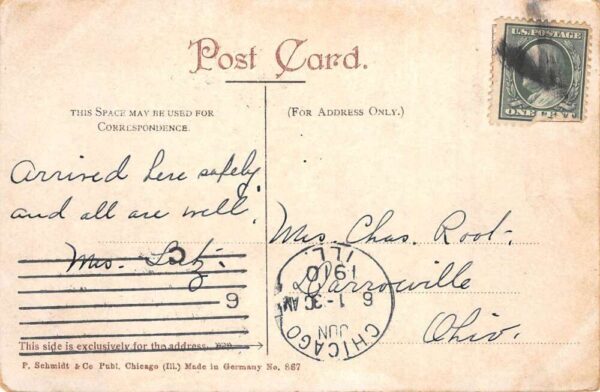 Post Card.
U.S. POSTAGE
ONE CENT
THIS SPACE MAY BE USED FOR
CORRESPONDENCE.
(FOR ADDRESS ONLY.)
Arrived here safely
and all are well.
Mrs. Lutz.
C
9
Mrs. Chas. Root.
Warrenville
Ohio.
CHICAGO
ILL.
JUN 6
1-30 AM
1910
This side is exclusively for the address.
P. Schmidt & Co Publ. Chicago (Ill.) Made in Germany No. 887